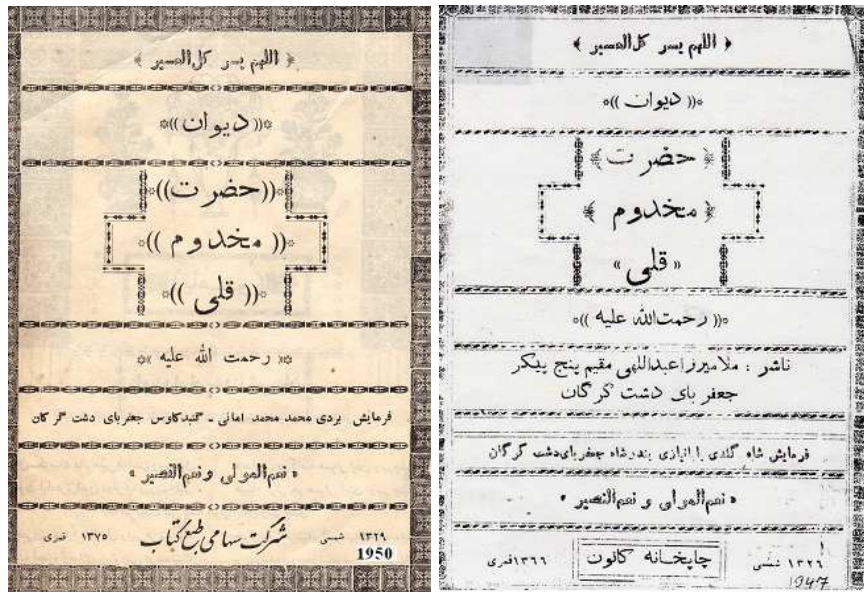 ﴿ اللهم يسر كل العسير ﴾
»(( ديوان ))«
((حضرت))
(( مخدوم ))
(( قلی ))
رحمت الله عليه
فرمايش بردی محمد محمد امانی ـ گنبدکاوس جعفربای دشت گرگان
« نعم‌المولی و نعم‌النصیر »
۱۳۲۹ شمسی شرکت سهامی طبع کتاب ۱۳۷۵ قمری
1950
﴿ اللهم يسر كل العسير ﴾
(( ديوان ))
﴿ حضرت ﴾
﴿ مخدوم ﴾
« قلی »
(( رحمت‌الله علیه ))
ناشر : ملامیرزاعبداللهی مقیم پنج پیکر
جعفر بای دشت گرگان
فرمایش شاه گلدی بندرشاه جعفربای‌دشت گرگان
« نعم‌المولی و نعم‌النصیر »
۱۳۲۶ شمسی چاپخانه کانون ۱۳۶۶قمری
1947